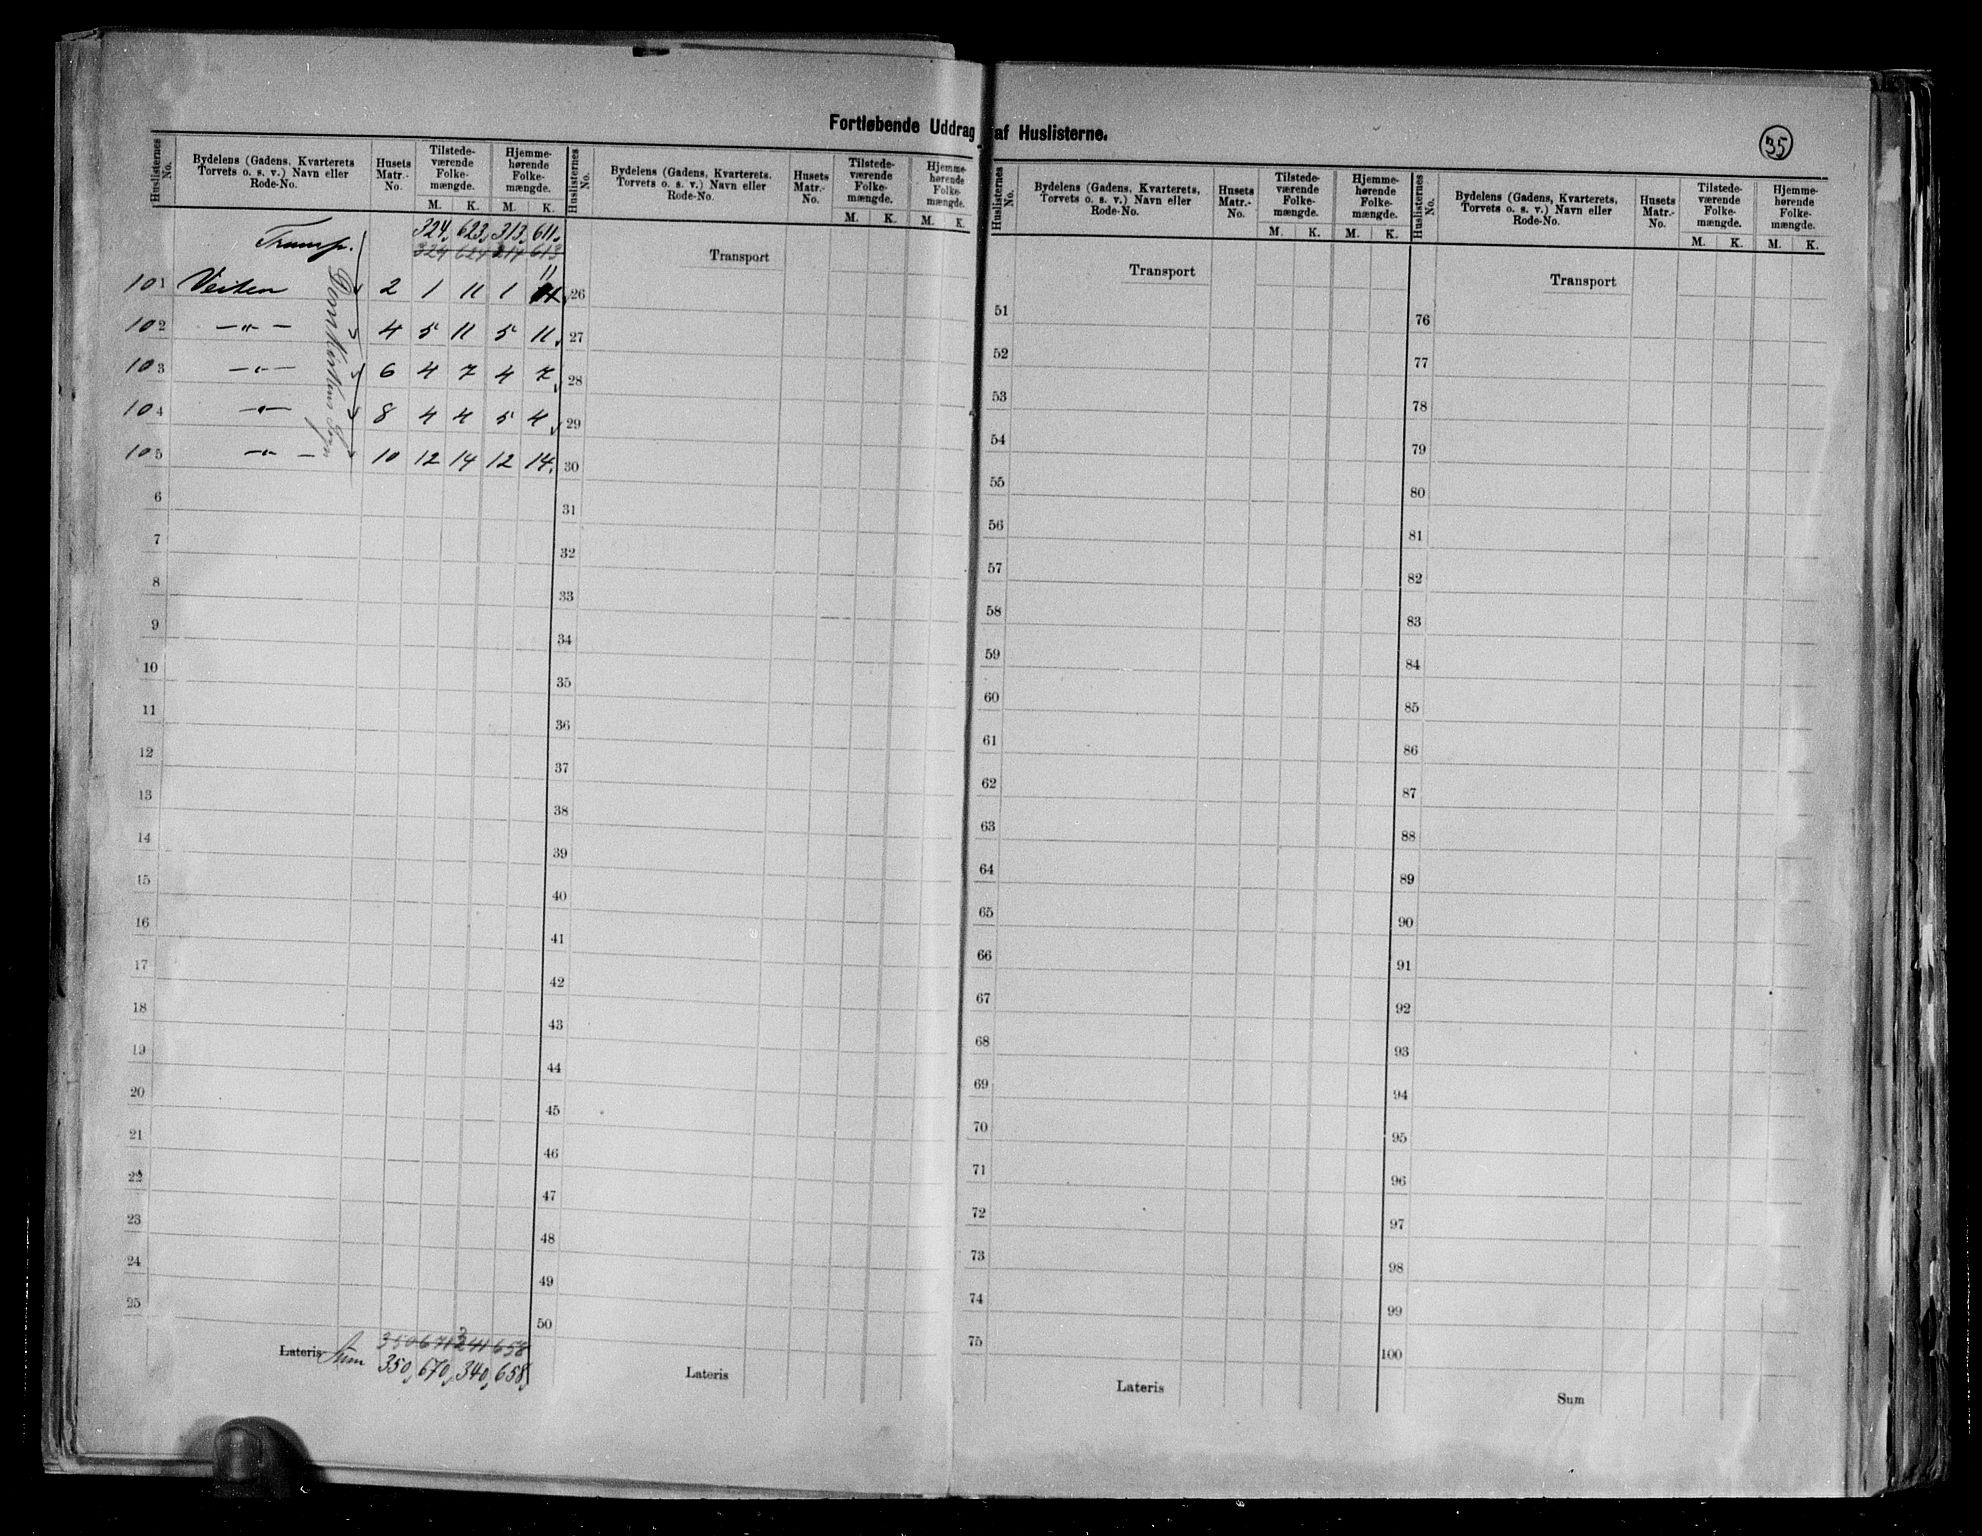 Fortløbende Uddrag af Huslisterne.
35
Huslisternes No. Bydelens (Gadens, Kvarterets Torvets o. s. v.) Navn eller Rode-No. Husets Matr.-No. Tilstede-værende Folke-mængde. M. K. Hjemme-hørende Folke-mængde. M. K.
Transp. 324, 623, 313, 611,
324 624 314 613
101 Veiten 2 1 11 1 11
102 —"— 4 5 11 5 11
103 —"— 6 4 7 4 7
104 —"— 8 4 4 5 4
105 —"— 10 12 14 12 14
Domkirkens Sogn
6
7
8
9
10
11
12
13
14
15
16
17
18
19
20
21
22
23
24
25
350 671 341 658
Lateris Sum 350, 670, 340, 658,
Huslisternes No. Bydelens (Gadens, Kvarterets. Torvets o. s. v.) Navn eller Rode-No. Husets Matr.-No. Tilstede-værende Folke-mængde. M. K. Hjemme-hørende Folke-mængde. M. K.
Transport
26
27
28
29
30
31
32
33
34
35
36
37
38
39
40
41
42
43
44
45
46
47
48
49
50
Lateris
Huslisternes No. Bydelens (Gadens, Kvarterets, Torvets o. s. v.) Navn eller Rode-No. Husets Matr.-No. Tilstede-værende Folke-mængde. M. K. Hjemme-hørende Folke-mængde. M. K.
Transport
51
52
53
54
55
56
57
58
59
60
61
62
63
64
65
66
67
68
69
70
71
72
73
74
75
Lateris
Huslisternes No. Bydelens (Gadens, Kvarterets, Torvets o. s. v.) Navn eller Rode-No. Husets Matr.-No. Tilstede-værende Folke-mængde. M. K. Hjemme-hørende Folke-mængde. M. K.
Transport
76
77
78
79
80
81
82
83
84
85
86
87
88
89
90
91
92
93
94
95
96
97
98
99
100
Sum